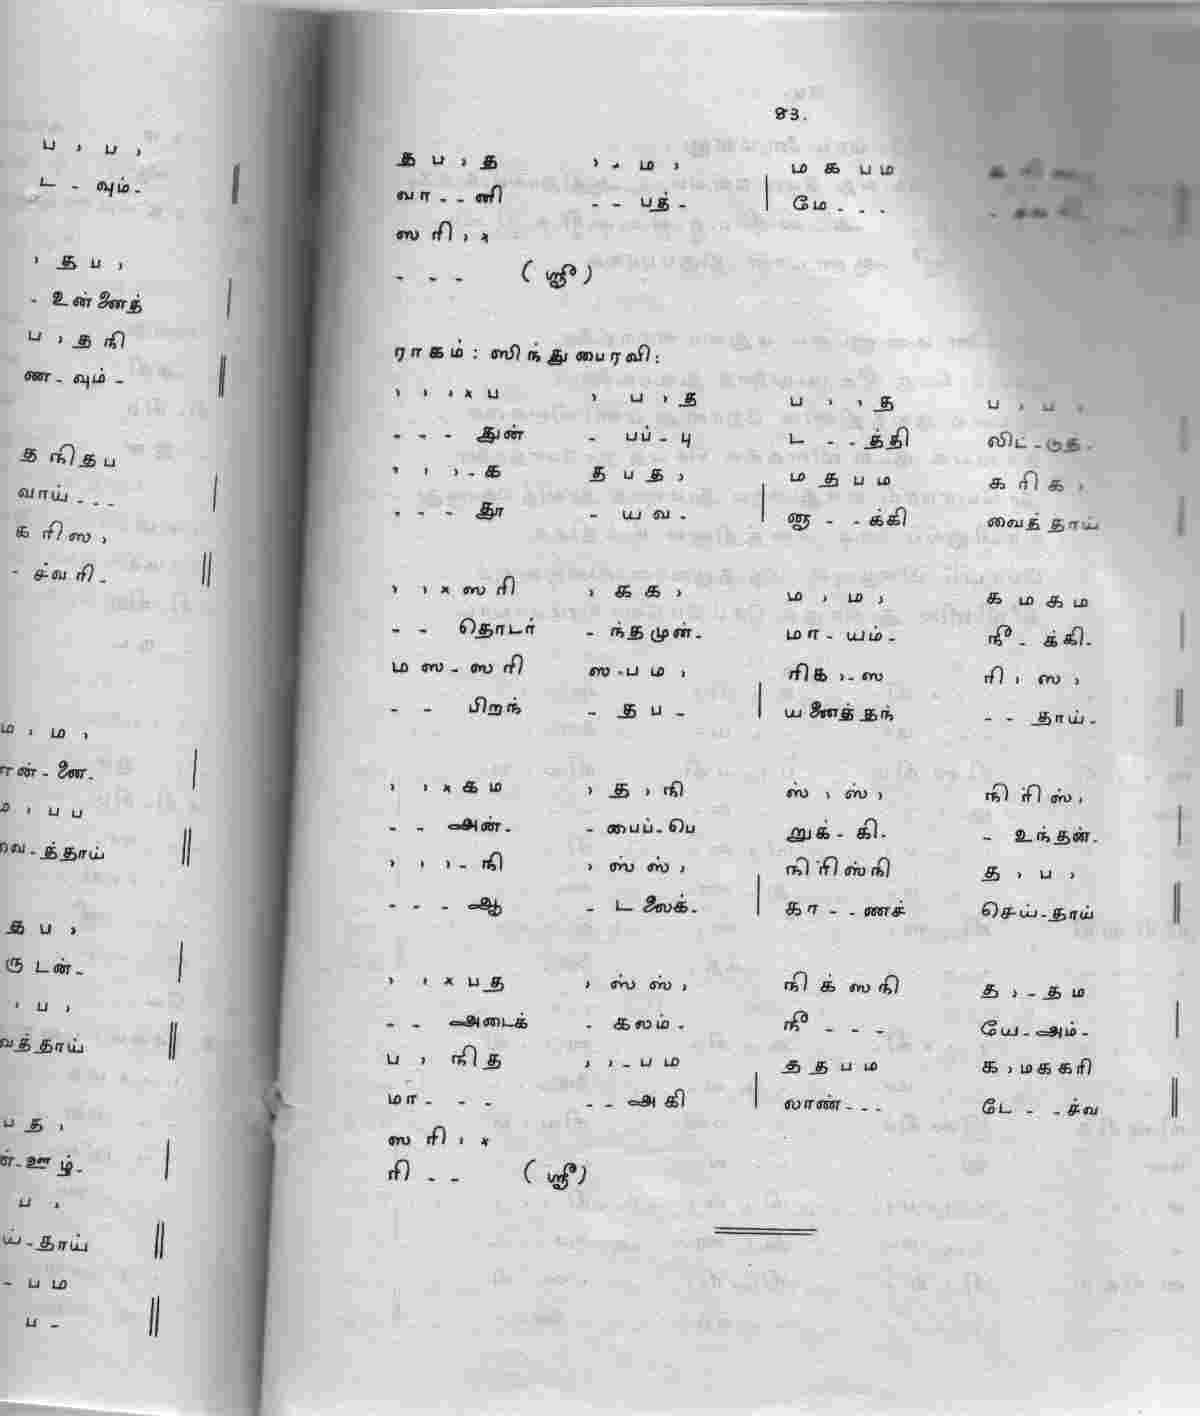 ப , ப ,
ட - வும் -
, த ப ,
- உன்னைத்
ப , த நி
ண - வும் -
த நி த ப
வாய் - - -
க ரி ஸ ,
- ச்வரி -
ம , ம ,
ன் - னை -
ம , ப ப
வை - த்தாய்
த ப ,
ரு டன் -
, ப ,
வத்தாய்
ப த ,
ன் - ஊழ் -
ப ,
ய் - தாய்
- ப ம
ப -
83.
த ப , த , - ம , ம க ப ம
வா - - னி - - பத் - | மே - - -
ஸ ரி , x
- - - (ஸ்ரீ)
ராகம் : ஸிந்து பைரவி :
, , , x ப , ப , த ப , , த ப , ப ,
- - - துன் - பப் - பு ட - - த்தி லிட் - டுத் -
, , , - க த ப த , ம த ப ம க ரி க ,
- - - தூ - ய வ - | ணு - - க்கி வைத் தாய்
, , x ஸ ரி , க க , ம , ம , க ம க ம
- - தொடர் - ந்தமுன் - மா - யம் - நீ - க்கி -
ம ஸ - ஸ ரி ஸ - ப ம , ரி க , - ஸ ரி , ஸ ,
- - பிறந் - த ப - | யணைத்தந் - - தாய் -
, , x க ம , த , நி ஸ் , ஸ் , நி ரி் ஸ் ,
- - அன் - - பைப் - பெ றுக் - கி - - உந்தன் -
, , , - நி , ஸ் ஸ் , நி ரி் ஸ் நி த , ப ,
- - - ஆ - ட லைக் - | கா - - ணச் செய் - தாய்
, , x ப த , ஸ் ஸ் , நி க் ஸ நி த , - த ம
- - அடைக் - கலம் - நீ - - - யே - அம் -
ப , நி த , , - ப ம த த ப ம க , ம க க ரி
மா - - - - - அகி | லாண் - - - டே - - ச்வ ||
ஸ ரி , x
ரி - - (ஸ்ரீ)